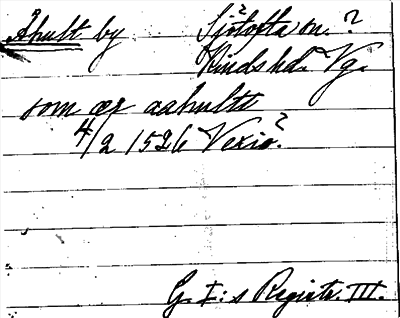 Åhult by Sjötofta sn. ?
Kinds hd. Vg.
som er aahultt
4/2 1526 Vexio ?
G. I:s Registr. III.